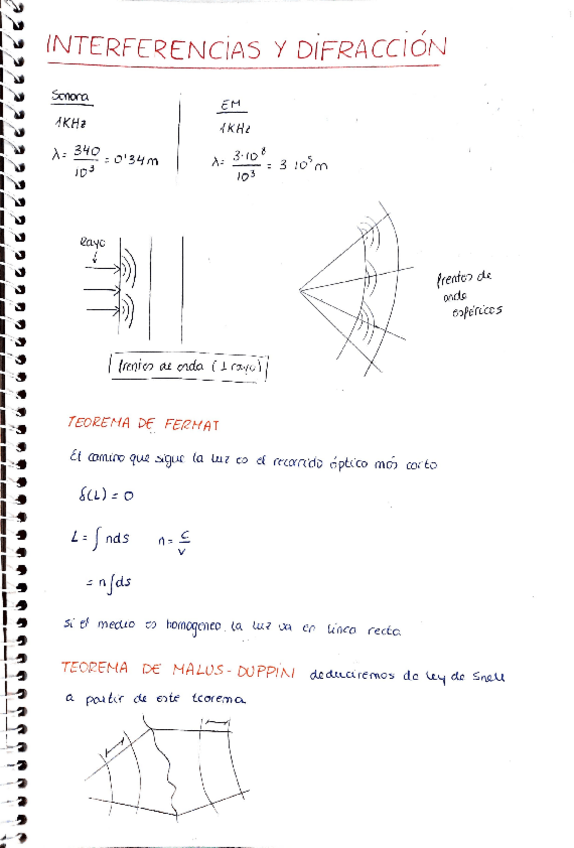 INTERFERENCIAS Y DIFRACCIÓN
Sonora
1KHz
λ = 340/10³ = 0'34m
EM
1KHz
λ = 3·10⁸/10³ = 3·10⁵m
Rayo
frentes de onda (⊥ rayo)
frentes de
onda
esféricos
TEOREMA DE FERMAT
El camino que sigue la luz es el recorrido óptico más corto
δ(L) = 0
L = ∫nds n = c/v
= n∫ds
si el medio es homogeneo, la luz va en línea recta
TEOREMA DE MALUS-DUPPINI deduciremos da ley de Snell
a partir de este teorema